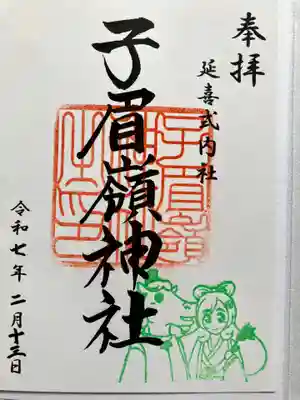 奉拝
延喜式内社
子眉嶺神社
令和七年二月十三日